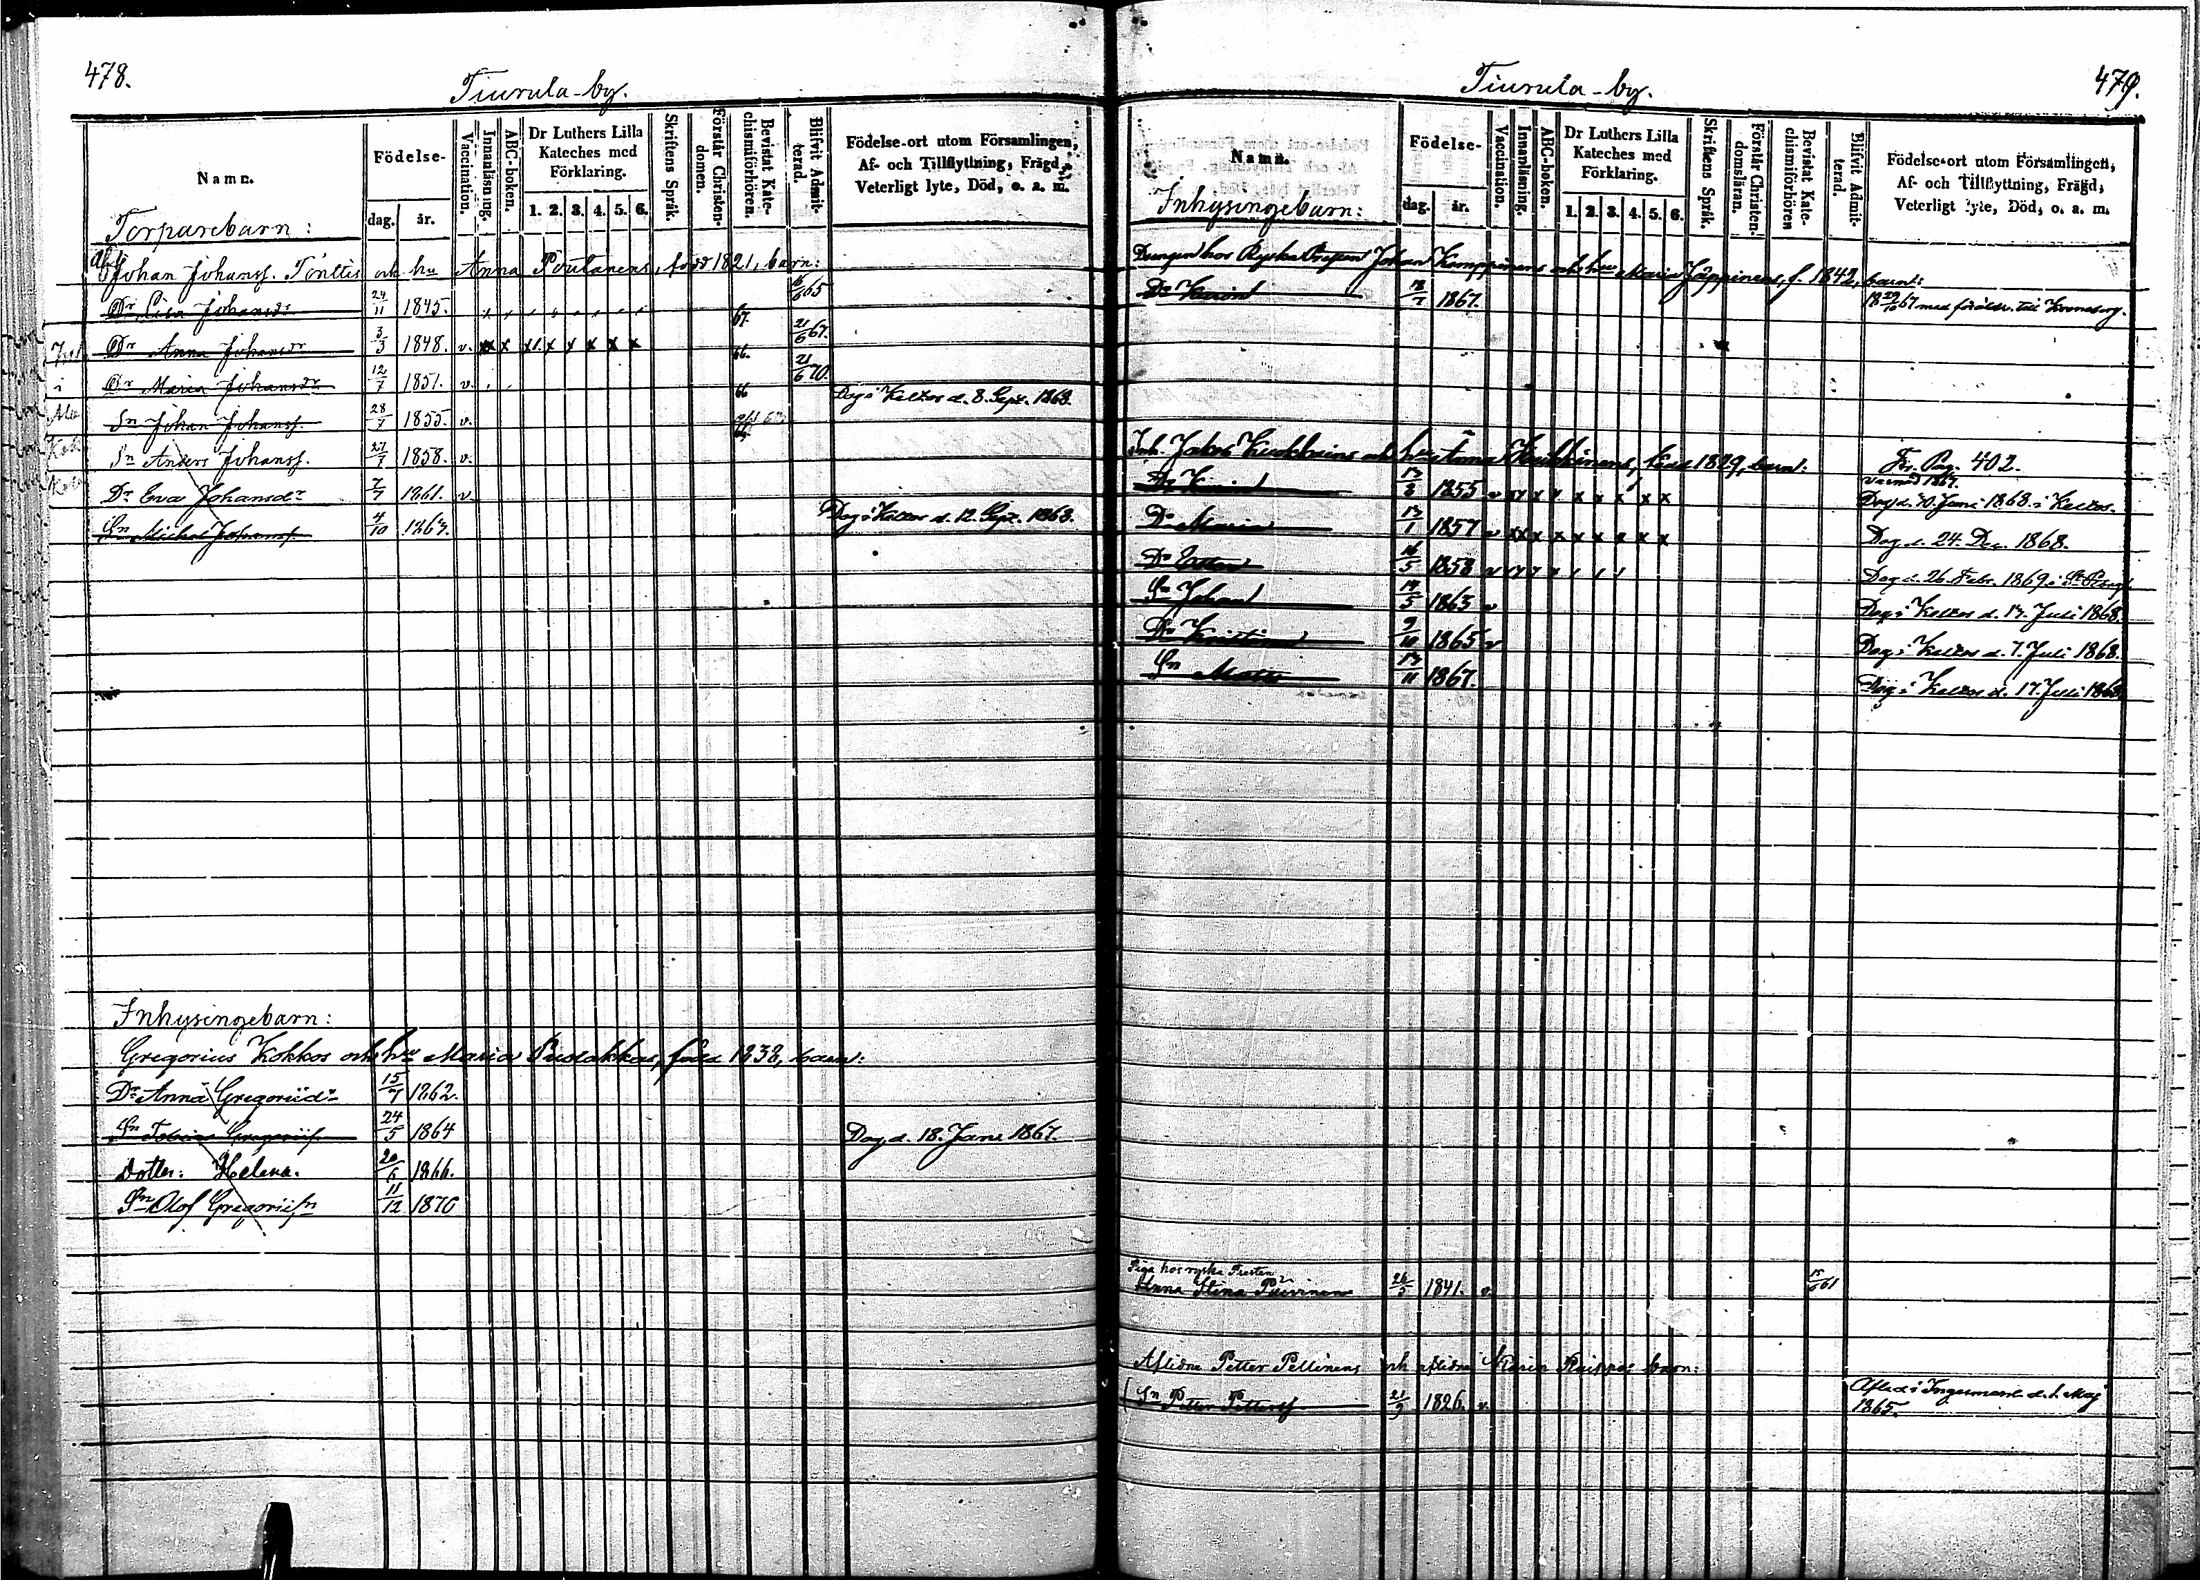 478.
Tiurula-by.
Namn.
Födelse-
dag. år.
Vaccination.
Innanläsning.
ABC-boken.
Dr Luthers Lilla Kateches med Förklaring.
1. 2. 3. 4. 5. 6.
Skriftens Språk.
Förstår Christendomen.
Bevistat Katechismiförhören.
Blifvit Admitterad.
Födelse-ort utom Församlingen,
Af- och Tillflyttning, Frägd,
Veterligt lyte, Död, o. a. m.
Torparebarn:
Johan Johanss. Tönttis och hu Anna Poutanens, född 1821, barn:
Dr Lisa Johansdr 24/11 1845. 65
Dr Anna Johansdr 3/3 1848. v. x x x x x x x 67. 21/6 67.
Dr Maria Johansdr 12/7 1851. v. 66. 21/6 70
Sn Johan Johanss. 28/7 1855. v. 66 Dog i Keltos d. 8. Sept. 1868.
Sn Anders Johanss. 27/7 1858. v.
Dr Eva Johansdr 7/7 1861. v
Sn Michel Johanss. 4/10 1867. Dog i Keltos d. 12. Sept. 1868.
Inhysingebarn:
Gregorius Kokkos och hu Maria Pudakkas, född 1838, barn:
Dr Anna Gregoriidr 15/7 1862.
Sn Tobias Gregoriis. 24/5 1864 Dog d. 18. Janu. 1867.
Dotter: Helena. 20/6 1866.
Sn Olof Gregoriisn 11/12 1870
479.
Tiurula-by.
Namn.
Födelse-
dag. år.
Vaccination.
Innanläsning.
ABC-boken.
Dr Luthers Lilla Kateches med Förklaring.
1. 2. 3. 4. 5. 6.
Skriftens Språk.
Förstår Christendomsläran.
Bevistat Katechismiförhören
Blifvit Admitterad.
Födelse-ort utom Församlingen,
Af- och Tillflyttning, Frägd,
Veterligt lyte, Död, o. a. m.
Inhysingebarn:
Drengen hos Ryska Presten Johan Kemppinens och hu Maria Jäppinens, f. 1842, barn:
Dr Karin 18/7 1867. 18 29/10 67 med föräldr. till Kroneborg.
Inh. Jakob och hu Anna Heikkinens, född 1829, barn: Fr. Pag. 402.
Dr 1855 v x x x x x x x Dog d. 10. Juni 1868. i Keltos.
Dr Maria 1857 v x x x x x x x x Dog d. 24. Dec. 1868.
Dr Ester 16/5 1858 v Dog d. 26. Febr. 1869 i
Sn Johan 1863 v Dog i Keltos d. 17. Juli 1868.
Dr Kristina 9/10 1865 v Dog i Keltos d. 7. Juli 1868.
Sn Matts 1867. Dog i Keltos d. 17. Juli 1868.
Piga hos ryska Presten
Anna Stina 26/5 1841. v. 61
Aflidne Petter Pellinens och aflidna Karin Raippas barn:
Sn Petter Petterss. 21/9 1826. v. Afled i Ingermanl. d. 1. Maj
1865.